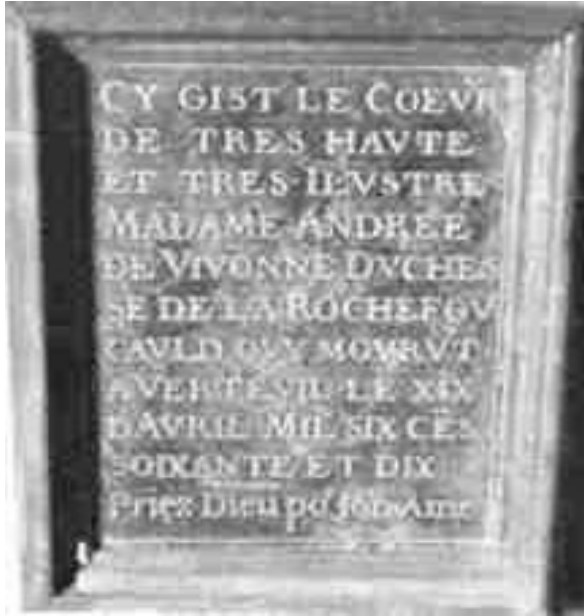 CY GIST LE COEVR
DE TRES HAVTE
ET TRES ILLVSTRE
MADAME ANDREE
DE VIVONNE DVCHES
SE DE LA ROCHEFOV
CAVLD QVY MOVRVT
A VERTEVIL LE XIX
D'AVRIL MIL SIX CEN
SOIXANTE ET DIX
Priez Dieu po^r son Ame